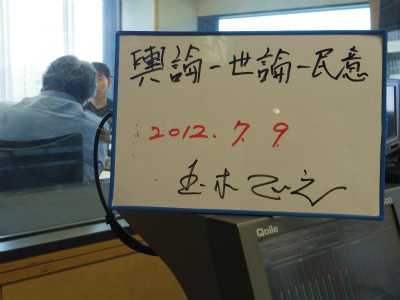 輿論-世論-民意
2012.7.9.
玉木
Qolle